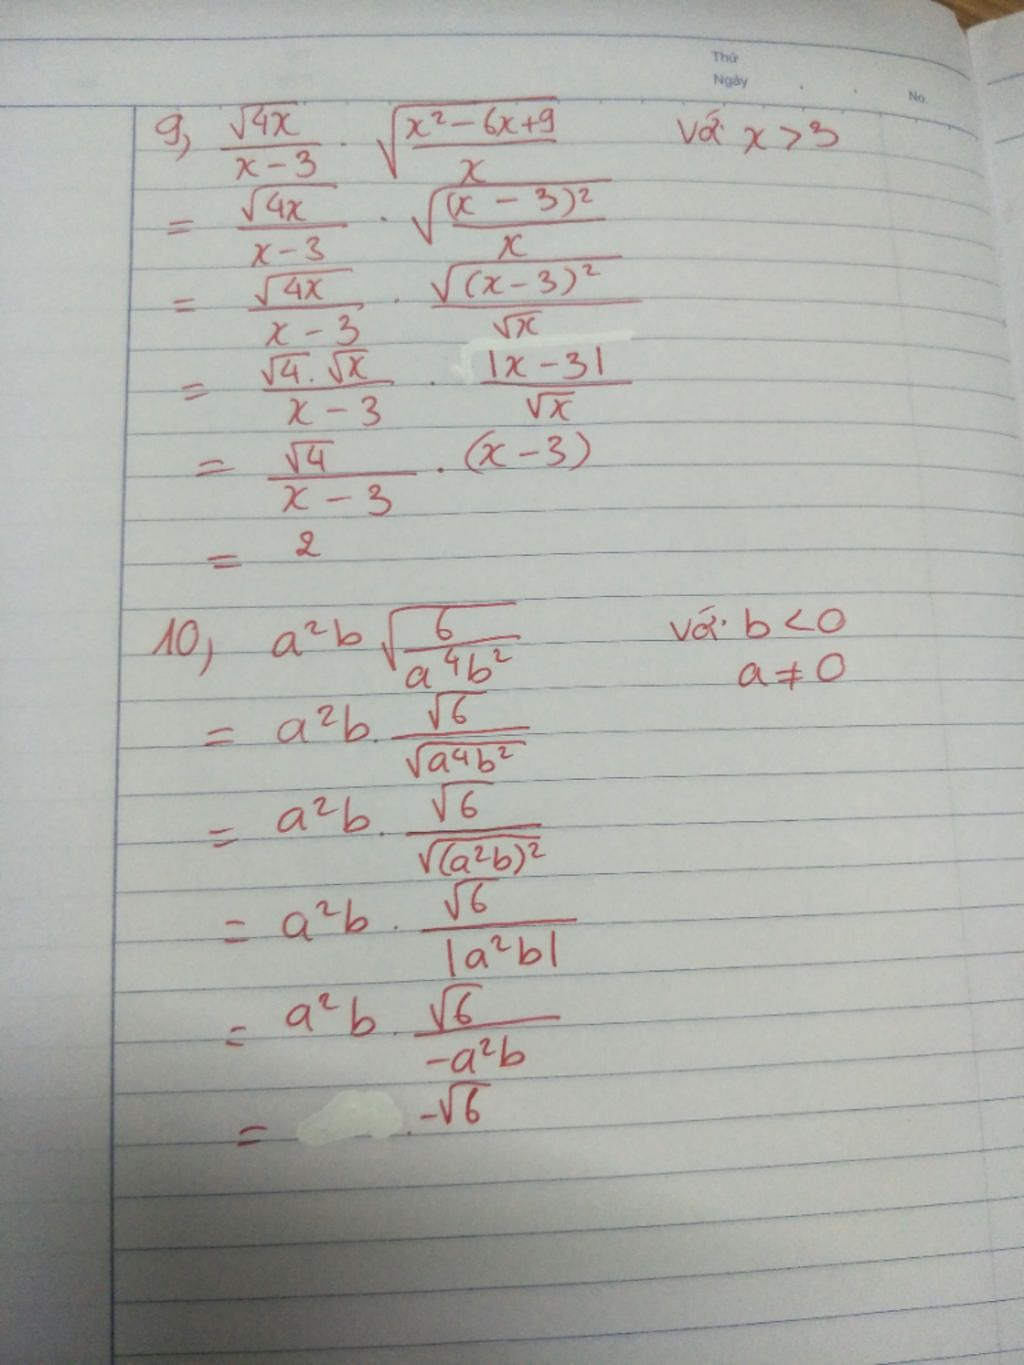 Thứ
Ngày
No.
9, √4x/(x-3) · √((x²-6x+9)/x) với x>3
= √4x/(x-3) · √((x-3)²/x)
= √4x/(x-3) · √(x-3)²/√x
= √4.√x/(x-3) · |x-3|/√x
= √4/(x-3) . (x-3)
= 2
10, a²b √(6/(a⁴b²)) với b<0
a≠0
= a²b. √6/√(a⁴b²)
= a²b. √6/√((a²b)²)
= a²b . √6/|a²b|
= a²b . √6/(-a²b)
= . -√6